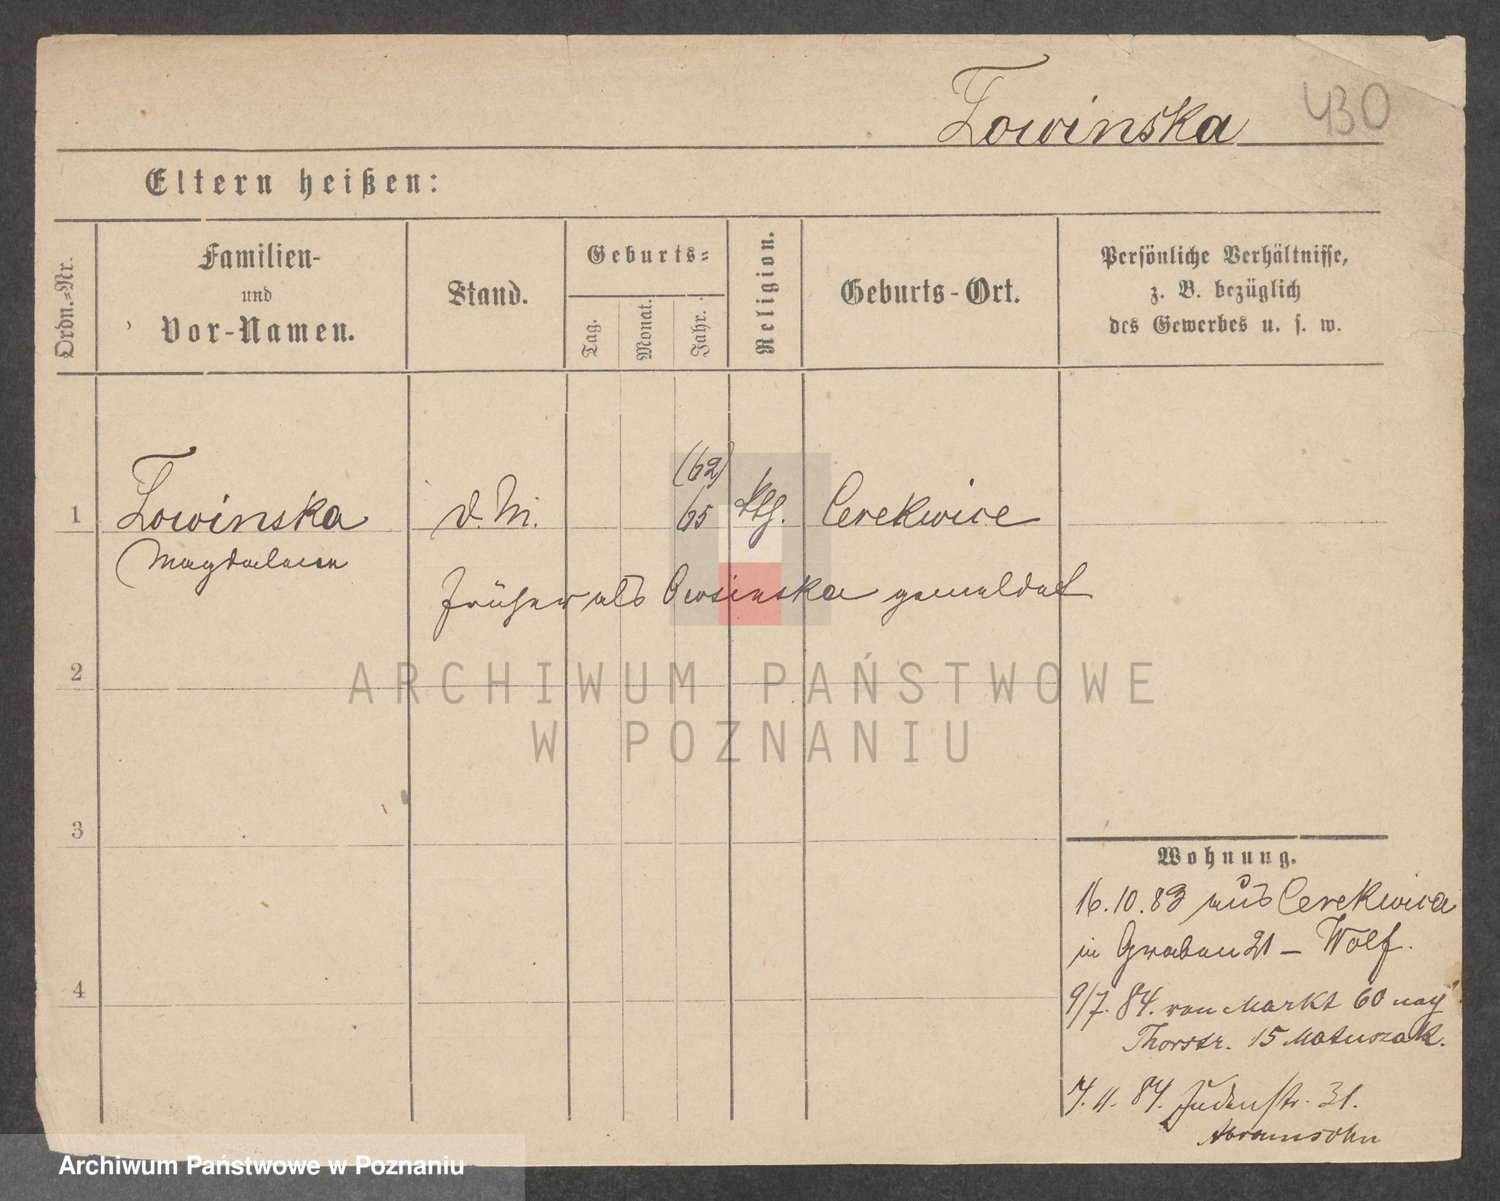 Lowinska 430
Eltern heißen:
Ordn.-Nr.
Familien-
und
Vor-Namen.
Stand.
Geburts-
Tag.
Monat.
Jahr.
Religion.
Geburts-Ort.
Persönliche Verhältnisse,
z. B. bezüglich
des Gewerbes u. s. w.
(62)
1 Lowinska d. M. 65 kth. Cerekwice
Magdalena
früher als Owsinska gemeldet
2
ARCHIWUM PAŃSTWOWE
W POZNANIU
3
Wohnung.
16.10.83 aus Cerekwica
in Graben 21 – Wolf.
4
9/7. 84. von Markt 60 nach
Thorstr. 15 Matuszak.
7.11.84. Judenstr. 31.
Abramsohn
Archiwum Państwowe w Poznaniu